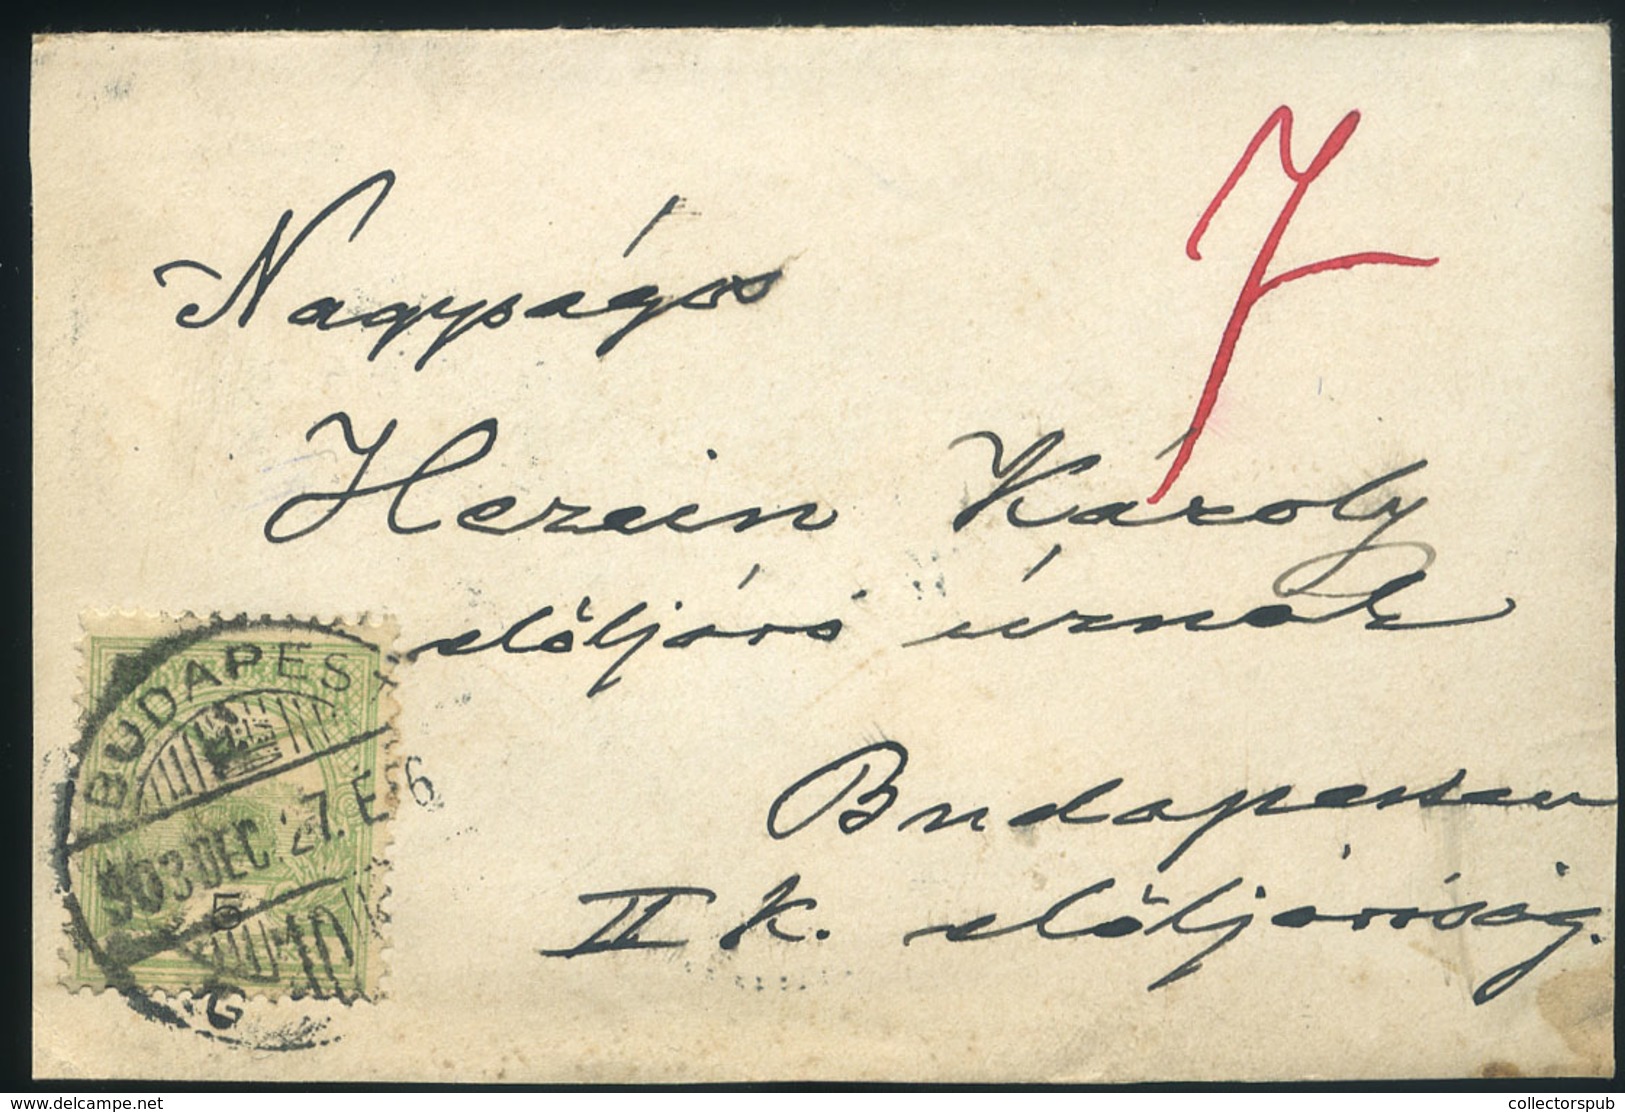 7
Nagyságos
Herein Károly
előljáró úrnak
Budapesten
II k. előljáróság.
BUDAPEST
903 DEC. 27. E 6
5
10
G
delcampe.net
collectorspub